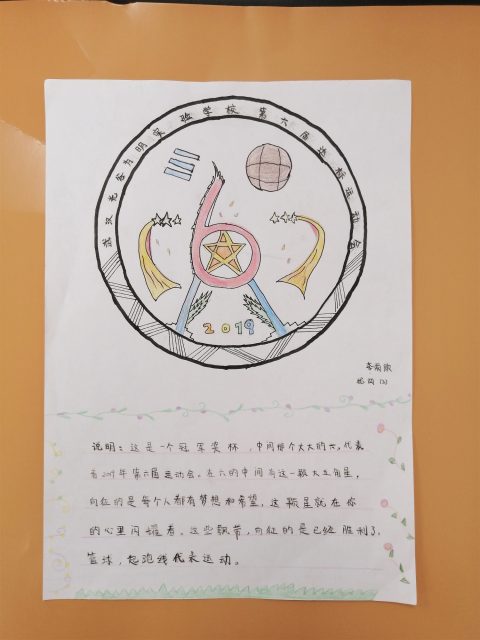 武汉光谷为明实验学校 第六届达标运动会
2019
说明：这是一个冠军奖杯，中间那个大大的六，代表
着2019年第六届运动会。在六的中间有这一颗大五角星，
向征的是每个人都有梦想和希望，这颗星就在你
的心里闪耀着。这些飘带，向征的是已经胜利了，
篮球，起跑线代表运动。